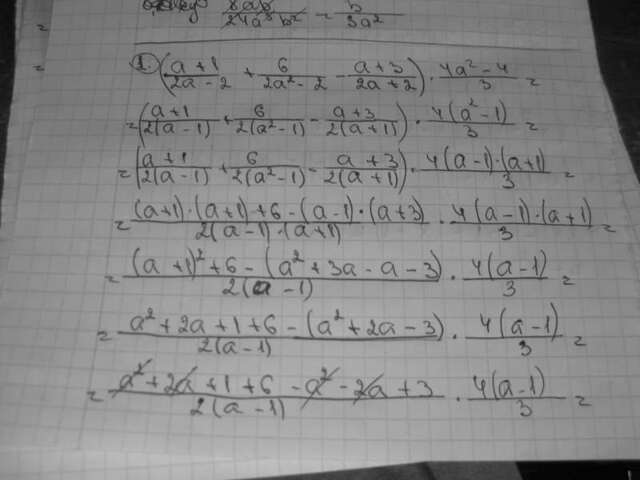 8ab/24a³b² = b/3a²
1. ((a+1)/(2a-2) + 6/(2a²-2) - (a+3)/(2a+2)) · (4a²-4)/3 =
= ((a+1)/(2(a-1)) + 6/(2(a²-1)) - (a+3)/(2(a+1))) · 4(a²-1)/3 =
= ((a+1)/(2(a-1)) + 6/(2(a²-1)) - (a+3)/(2(a+1))) · 4(a-1)·(a+1)/3 =
= ((a+1)·(a+1)+6-(a-1)·(a+3))/(2(a-1)·(a+1)) · 4(a-1)·(a+1)/3 =
= ((a+1)²+6-(a²+3a-a-3))/(2(a-1)) · 4(a-1)/3 =
= (a²+2a+1+6-(a²+2a-3))/(2(a-1)) · 4(a-1)/3 =
= (a²+2a+1+6-a²-2a+3)/(2(a-1)) · 4(a-1)/3 =